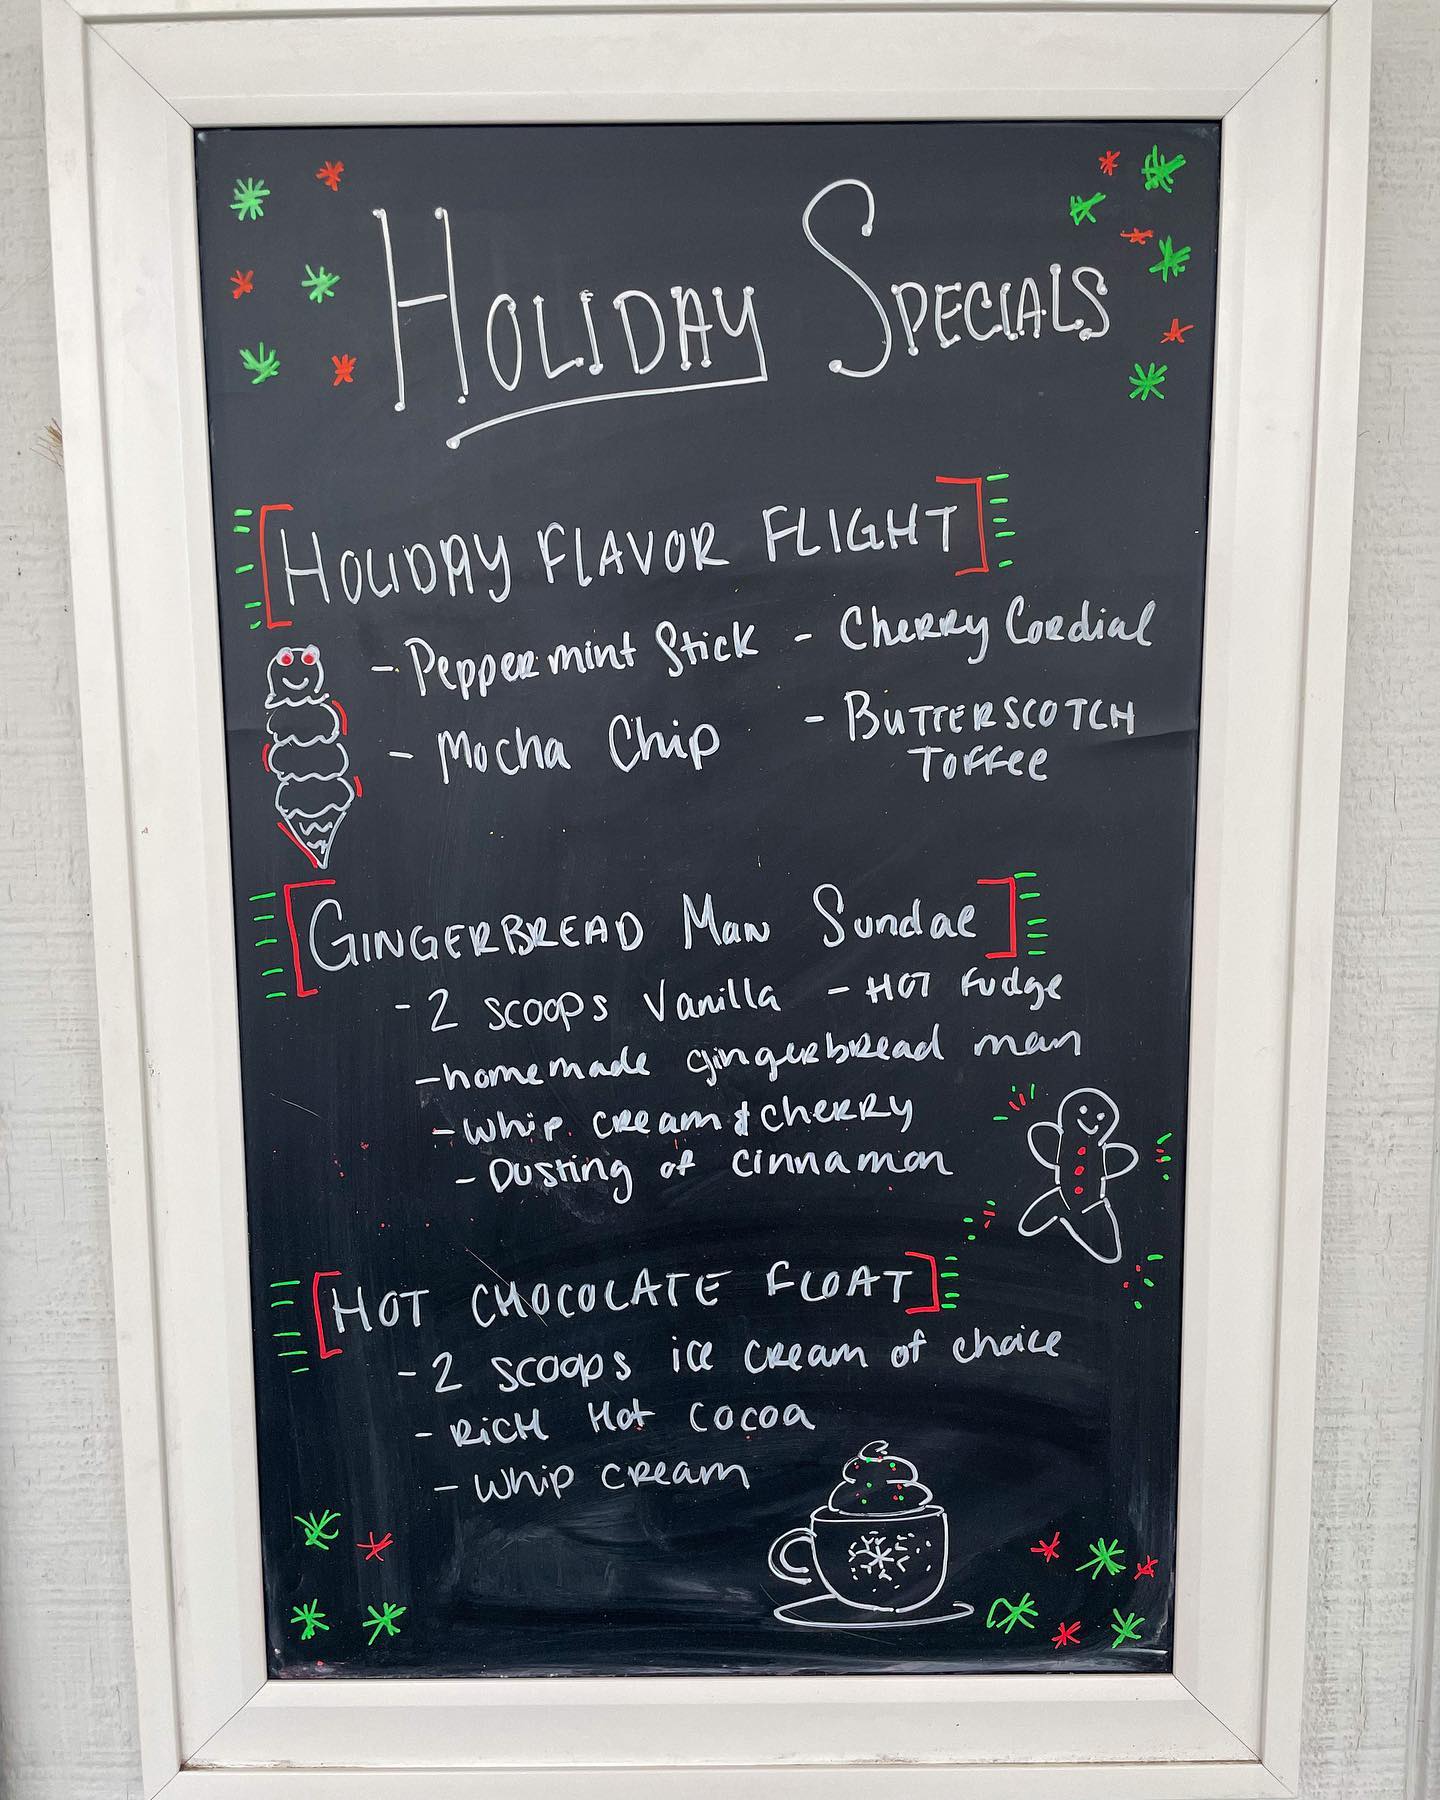 HOLIDAY SPECIALS
HOLIDAY FLAVOR FLIGHT
- Peppermint Stick - Cherry Cordial
- Mocha Chip - BUTTERSCOTCH
Toffee
GINGERBREAD Man Sundae
- 2 scoops Vanilla - HOT Fudge
- homemade gingerbread man
- Whip cream & cherry
- Dusting of cinnamon
HOT CHOCOLATE FLOAT
- 2 scoops ice cream of choice
- RICH Hot cocoa
- Whip cream